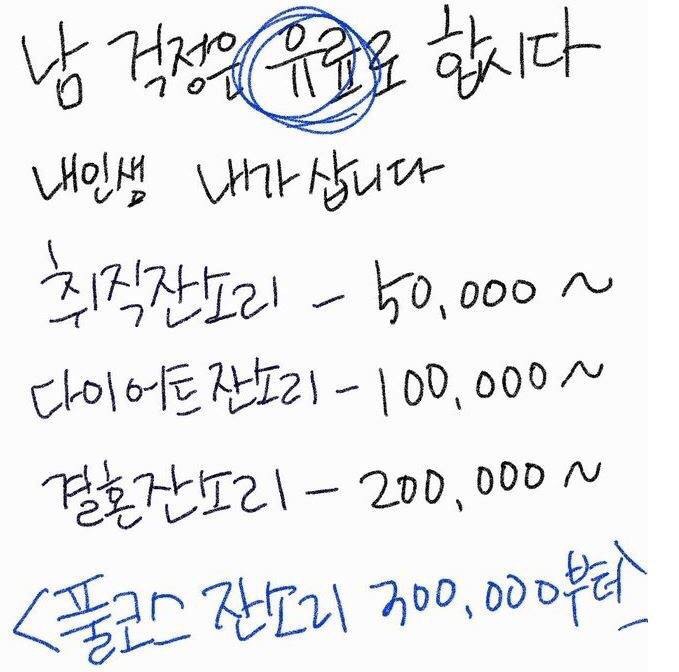 남 걱정은 유료로 합시다
내인생 내가 삽니다
취직잔소리 - 50,000 ~
다이어트 잔소리 - 100,000 ~
결혼잔소리 - 200,000 ~
<풀코스 잔소리 300,000부터>